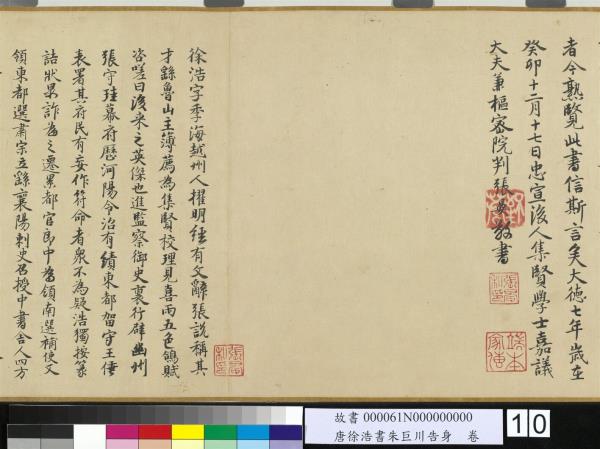 者今熟覽此書信斯言矣大德七年歲在
癸卯十二月十七日忠宣後人集賢學士嘉議
大夫兼樞密院判張晏敬書
張晏私印
端本家傳
徐浩字季海越州人擢明經有文辭張說稱其
才繇魯山主薄薦為集賢校理見喜雨五色鴿賦
咨嗟曰後来之英傑也進監察御史裏行辟幽州
張守珪幕府歷河陽令治有績東都留守王倕
表署其府民有妄作符命者衆不為疑浩獨按篆
詰狀果詐為之遷累都官郎中為領南選補使又
領東都選肅宗立繇襄陽刺史召授中書舍人四方
張晏私印
故書 000061N000000000
唐徐浩書朱巨川告身 卷
10